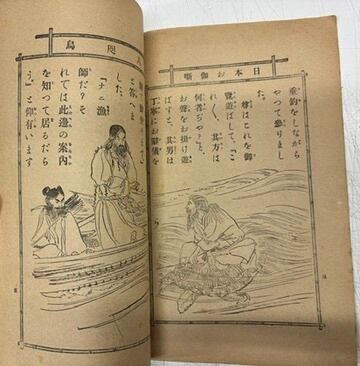 日本お伽噺
垂釣をしながら
やつて參りまし
た。
尊はこれを御
覽遊ばして、「こ
れ〳〵、其方は
何者ぢや?」と、
お聲をお掛け遊
ばすと、其男は
丁寧にお辭儀を
咫烏
と答へま
した。
「ナニ漁
師だ?そ
れでは此邊の案内
を知つて居るだら
う」と仰有います